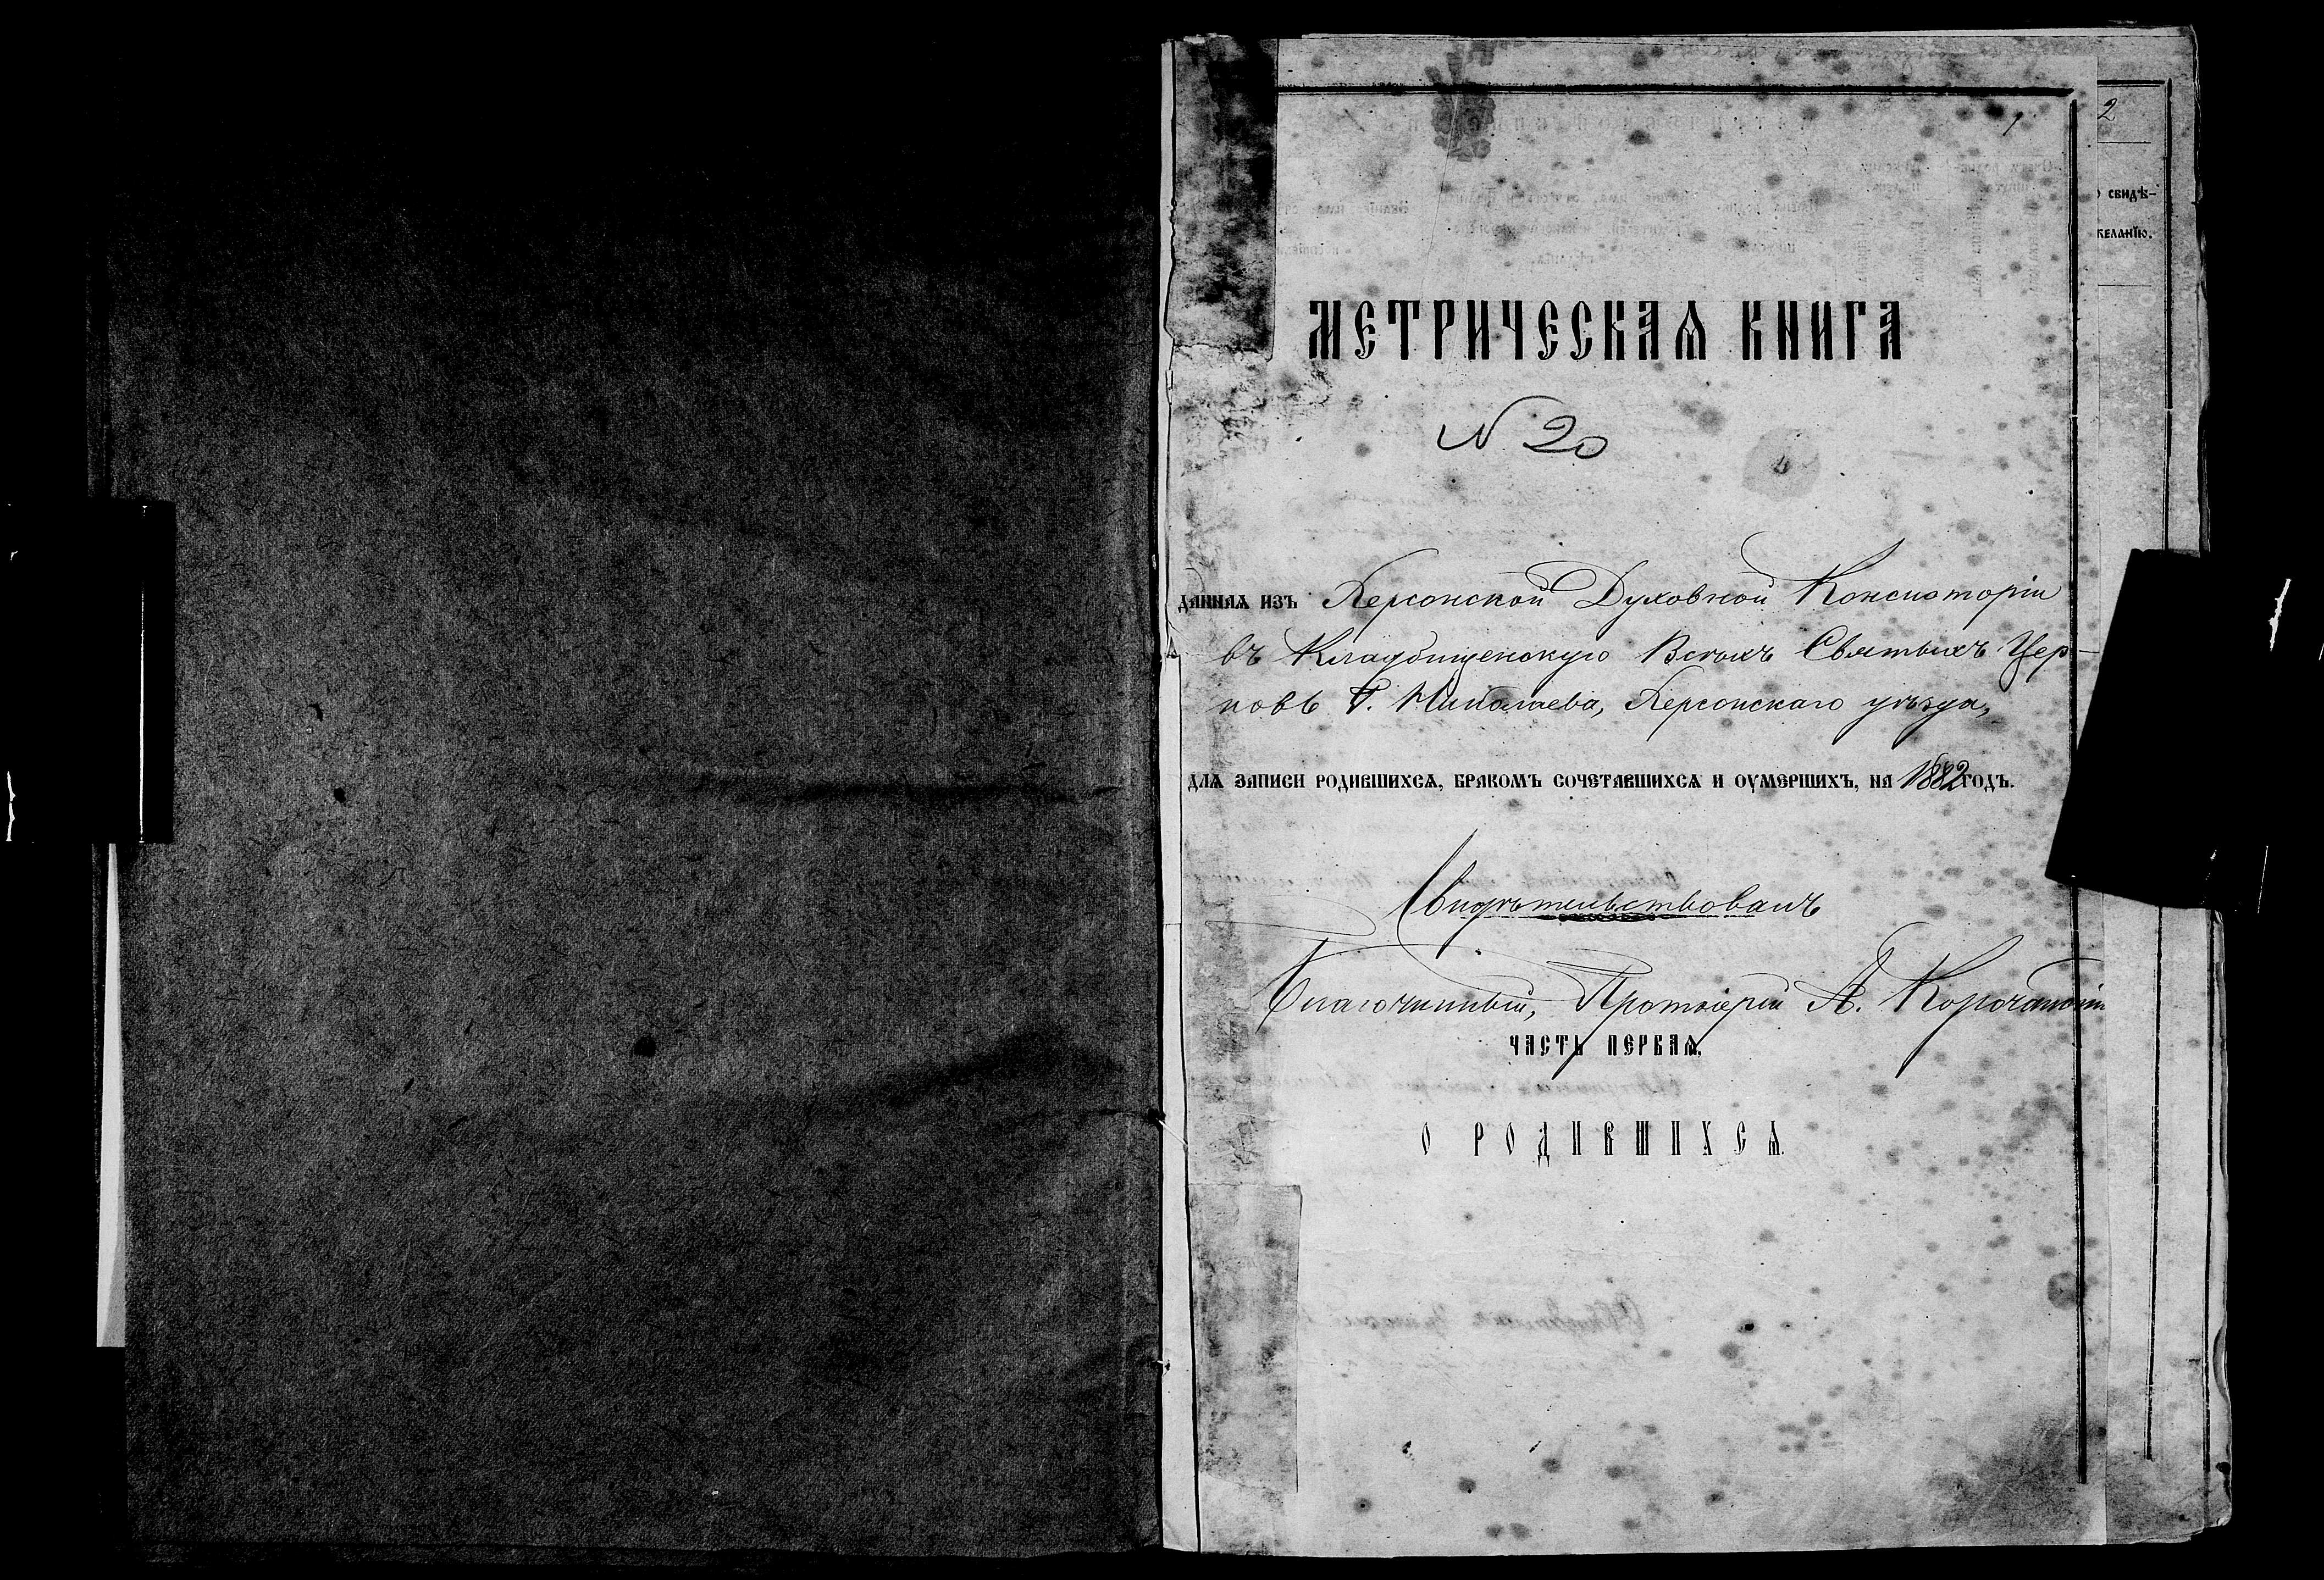 1
2
о свидѣ-
желанїю.
МЕТРИЧЕСКАѦ КНИГА
N 20
даннаѧ изъ Херсонской Духовной Консисторіи
въ Кладбищенскую Всѣхъ Святыхъ Цер-
ковь г. Николаева, Херсонскаго уѣзда,
длѧ записи родившихсѧ, бракомъ сочетавшихсѧ и оумершихъ, на 1882 годъ.
Свидѣтельствовалъ
Благочинный, Протоіерей А.
ЧАСТЬ ПЕРВАѦ,
О РОДИВШИХСѦ.